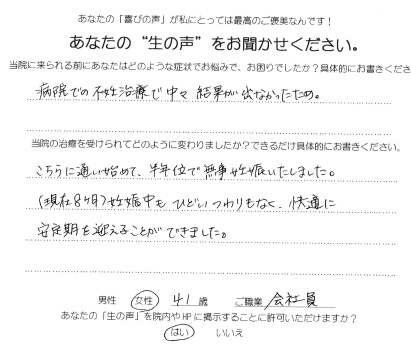 あなたの「喜びの声」が私にとっては最高のご褒美なんです！
あなたの“生の声”をお聞かせください。
当院に来られる前にあなたはどのような症状でお悩みで、お困りでしたか？具体的にお書きくださ
病院での不妊治療で中々結果が出なかったため。
当院の治療を受けられてどのように変わりましたか？できるだけ具体的にお書きください。
こちらに通い始めて、半年位で無事妊娠いたしました。
(現在8ヶ月)妊娠中もひどいつわりもなく、快適に
安定期を迎えることができました。
男性 女性 41歳 ご職業 会社員
あなたの「生の声」を院内やHPに掲示することに許可いただけますか？
はい いいえ